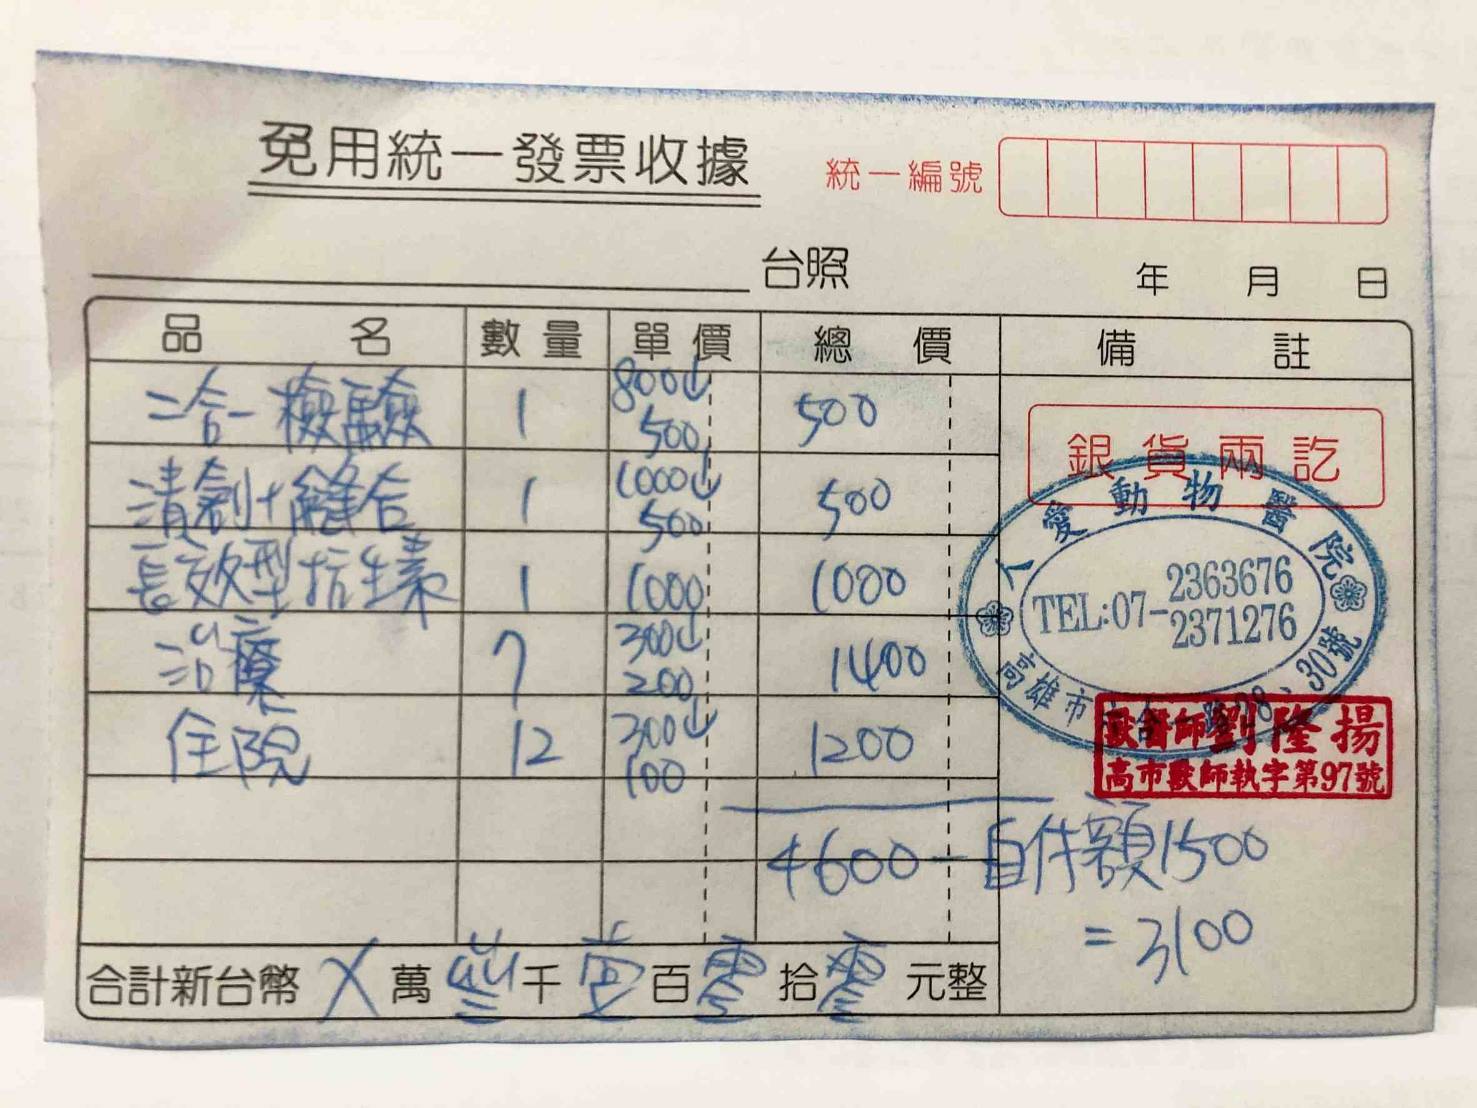 免用統一發票收據
統一編號
台照
年 月 日
品名 數量 單價 總價 備註
二合一檢驗 1 800↓ 500 500
清創+縫合 1 1000↓ 500 500
長效型抗生素 1 1000 1000
治療 7 300↓ 200 1400
住院 12 300↓ 100 1200
4600-自付額1500
=3100
合計新台幣 X 萬 參 千 壹 百 零 拾 零 元整
銀貨兩訖
人愛動物醫院
TEL:07-2363676
2371276
高雄市六合一路28、30號
獸醫師劉隆揚
高市獸師執字第97號